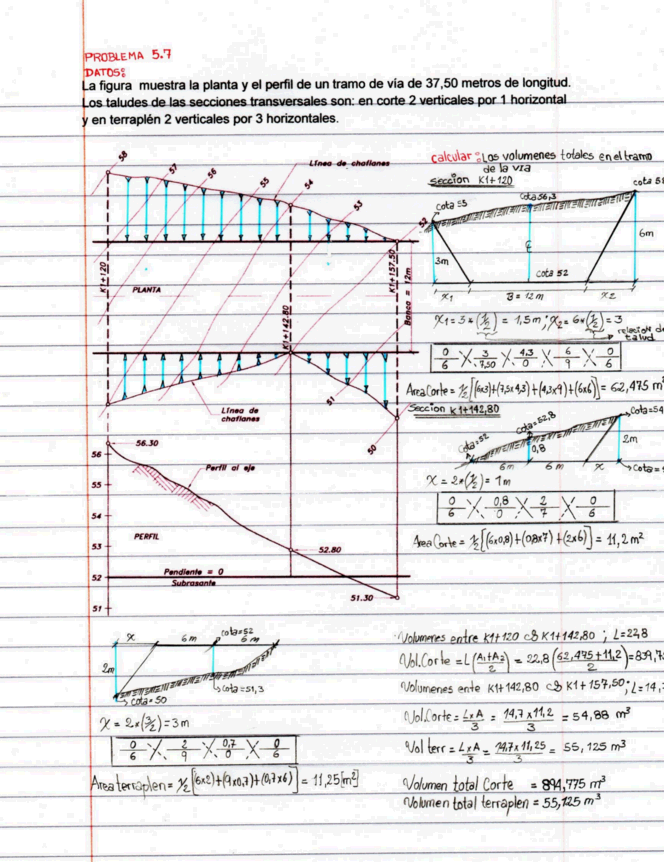 PROBLEMA 5.7
DATOS:
La figura muestra la planta y el perfil de un tramo de vía de 37,50 metros de longitud.
Los taludes de las secciones transversales son: en corte 2 verticales por 1 horizontal
y en terraplén 2 verticales por 3 horizontales.
58
57
56
55
54
53
52
Línea de chaflanes
K1+120
PLANTA
K1+142.80
K1+157.50
Banca = 12m
Línea de
chaflanes
51
50
56.30
56
55
54
53
52
51
Perfil al eje
PERFIL
52.80
Pendiente = 0
Subrasante
51.30
calcular: Los volumenes totales en el tramo
de la via
sección K1+120
cota 5
cota 56,3
cota 55
3m
6m
℄
cota 52
x1
B = 12m
x2
X1=3*(1/2) = 1,5m ; X2=6*(1/2)=3
relación de
talud
0/6 X 3/7,50 X 4,3/0 X 6/9 X 0/6
Area Corte = 1/2[(6x3)+(7,5x4,3)+(4,3x9)+(6x6)] = 62,475 m²
Sección K1+142,80
cota=52
cota=52,8
Cota=54
0,8
2m
6m
6m
x
Cota=
x = 2*(1/2)= 1m
0/6 X 0,8/0 X 2/7 X 0/6
Area Corte = 1/2[(6x0,8)+(0,8x7)+(2x6)] = 11,2m²
x
6m
cota=52
6m
2m
cota=50
cota=51,3
X = 2*(3/2)=3m
0/6 X 2/9 X 0,7/0 X 0/6
Area terraplen = 1/2[(6x2)+(9x0,7)+(0,7x6)] = 11,25[m²]
Volumenes entre K1+120 K1+142,80 ; L=22,8
Vol.Corte = L(A1+A2/2) = 22,8(62,475+11,2/2)=839,7
Volumenes ente K1+142,80 K1+157,50; L=14,
Vol.Corte = LxA/3 = 14,7x11,2/3 = 54,88 m³
Vol terr = LxA/3 = 14,7x11,25/3 = 55,125 m³
Volumen total Corte = 894,775 m³
Volumen total terraplen = 55,125 m³